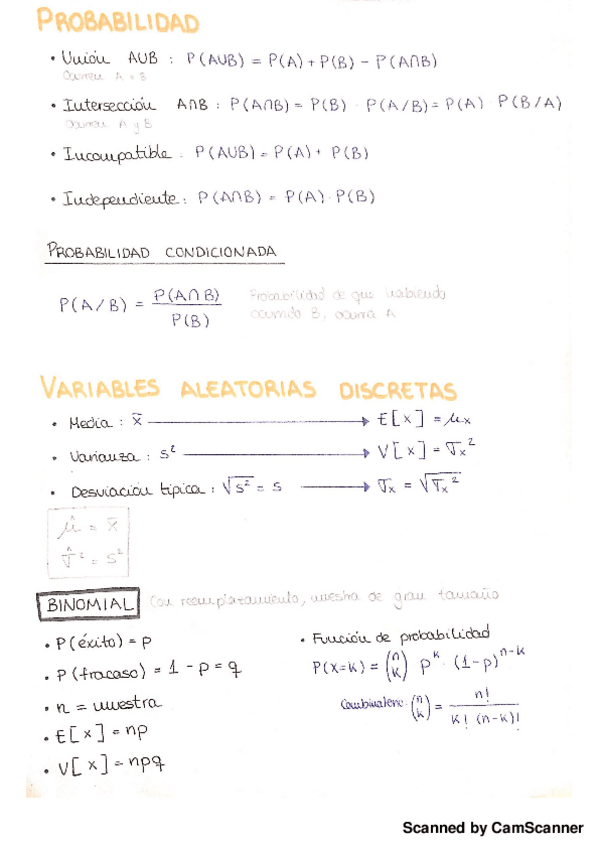 PROBABILIDAD
• Unión A∪B : P(A∪B) = P(A) + P(B) - P(A∩B)
Ocurren A o B
• Intersección A∩B : P(A∩B) = P(B) · P(A/B) = P(A) P(B/A)
Ocurren A y B
• Incompatible : P(A∪B) = P(A) + P(B)
• Independiente : P(A∩B) = P(A) · P(B)
PROBABILIDAD CONDICIONADA
P(A/B) = P(A∩B) / P(B)
Probabilidad de que habiendo
ocurrido B, ocurra A
VARIABLES ALEATORIAS DISCRETAS
• Media : x̄ → E[x] = μx
• Varianza : s² → V[x] = σx²
• Desviación típica : √s² = s → σx = √σx²
μ̂ = x̄
σ̂² = s²
BINOMIAL Con reemplazamiento, muestra de gran tamaño
• P(éxito) = p
• P(fracaso) = 1 - p = q
• n = muestra
• E[x] = np
• V[x] = npq
• Función de probabilidad
P(x=k) = (n k) p^k · (1-p)^n-k
(n k) = n! / k! (n-k)!
Scanned by CamScanner